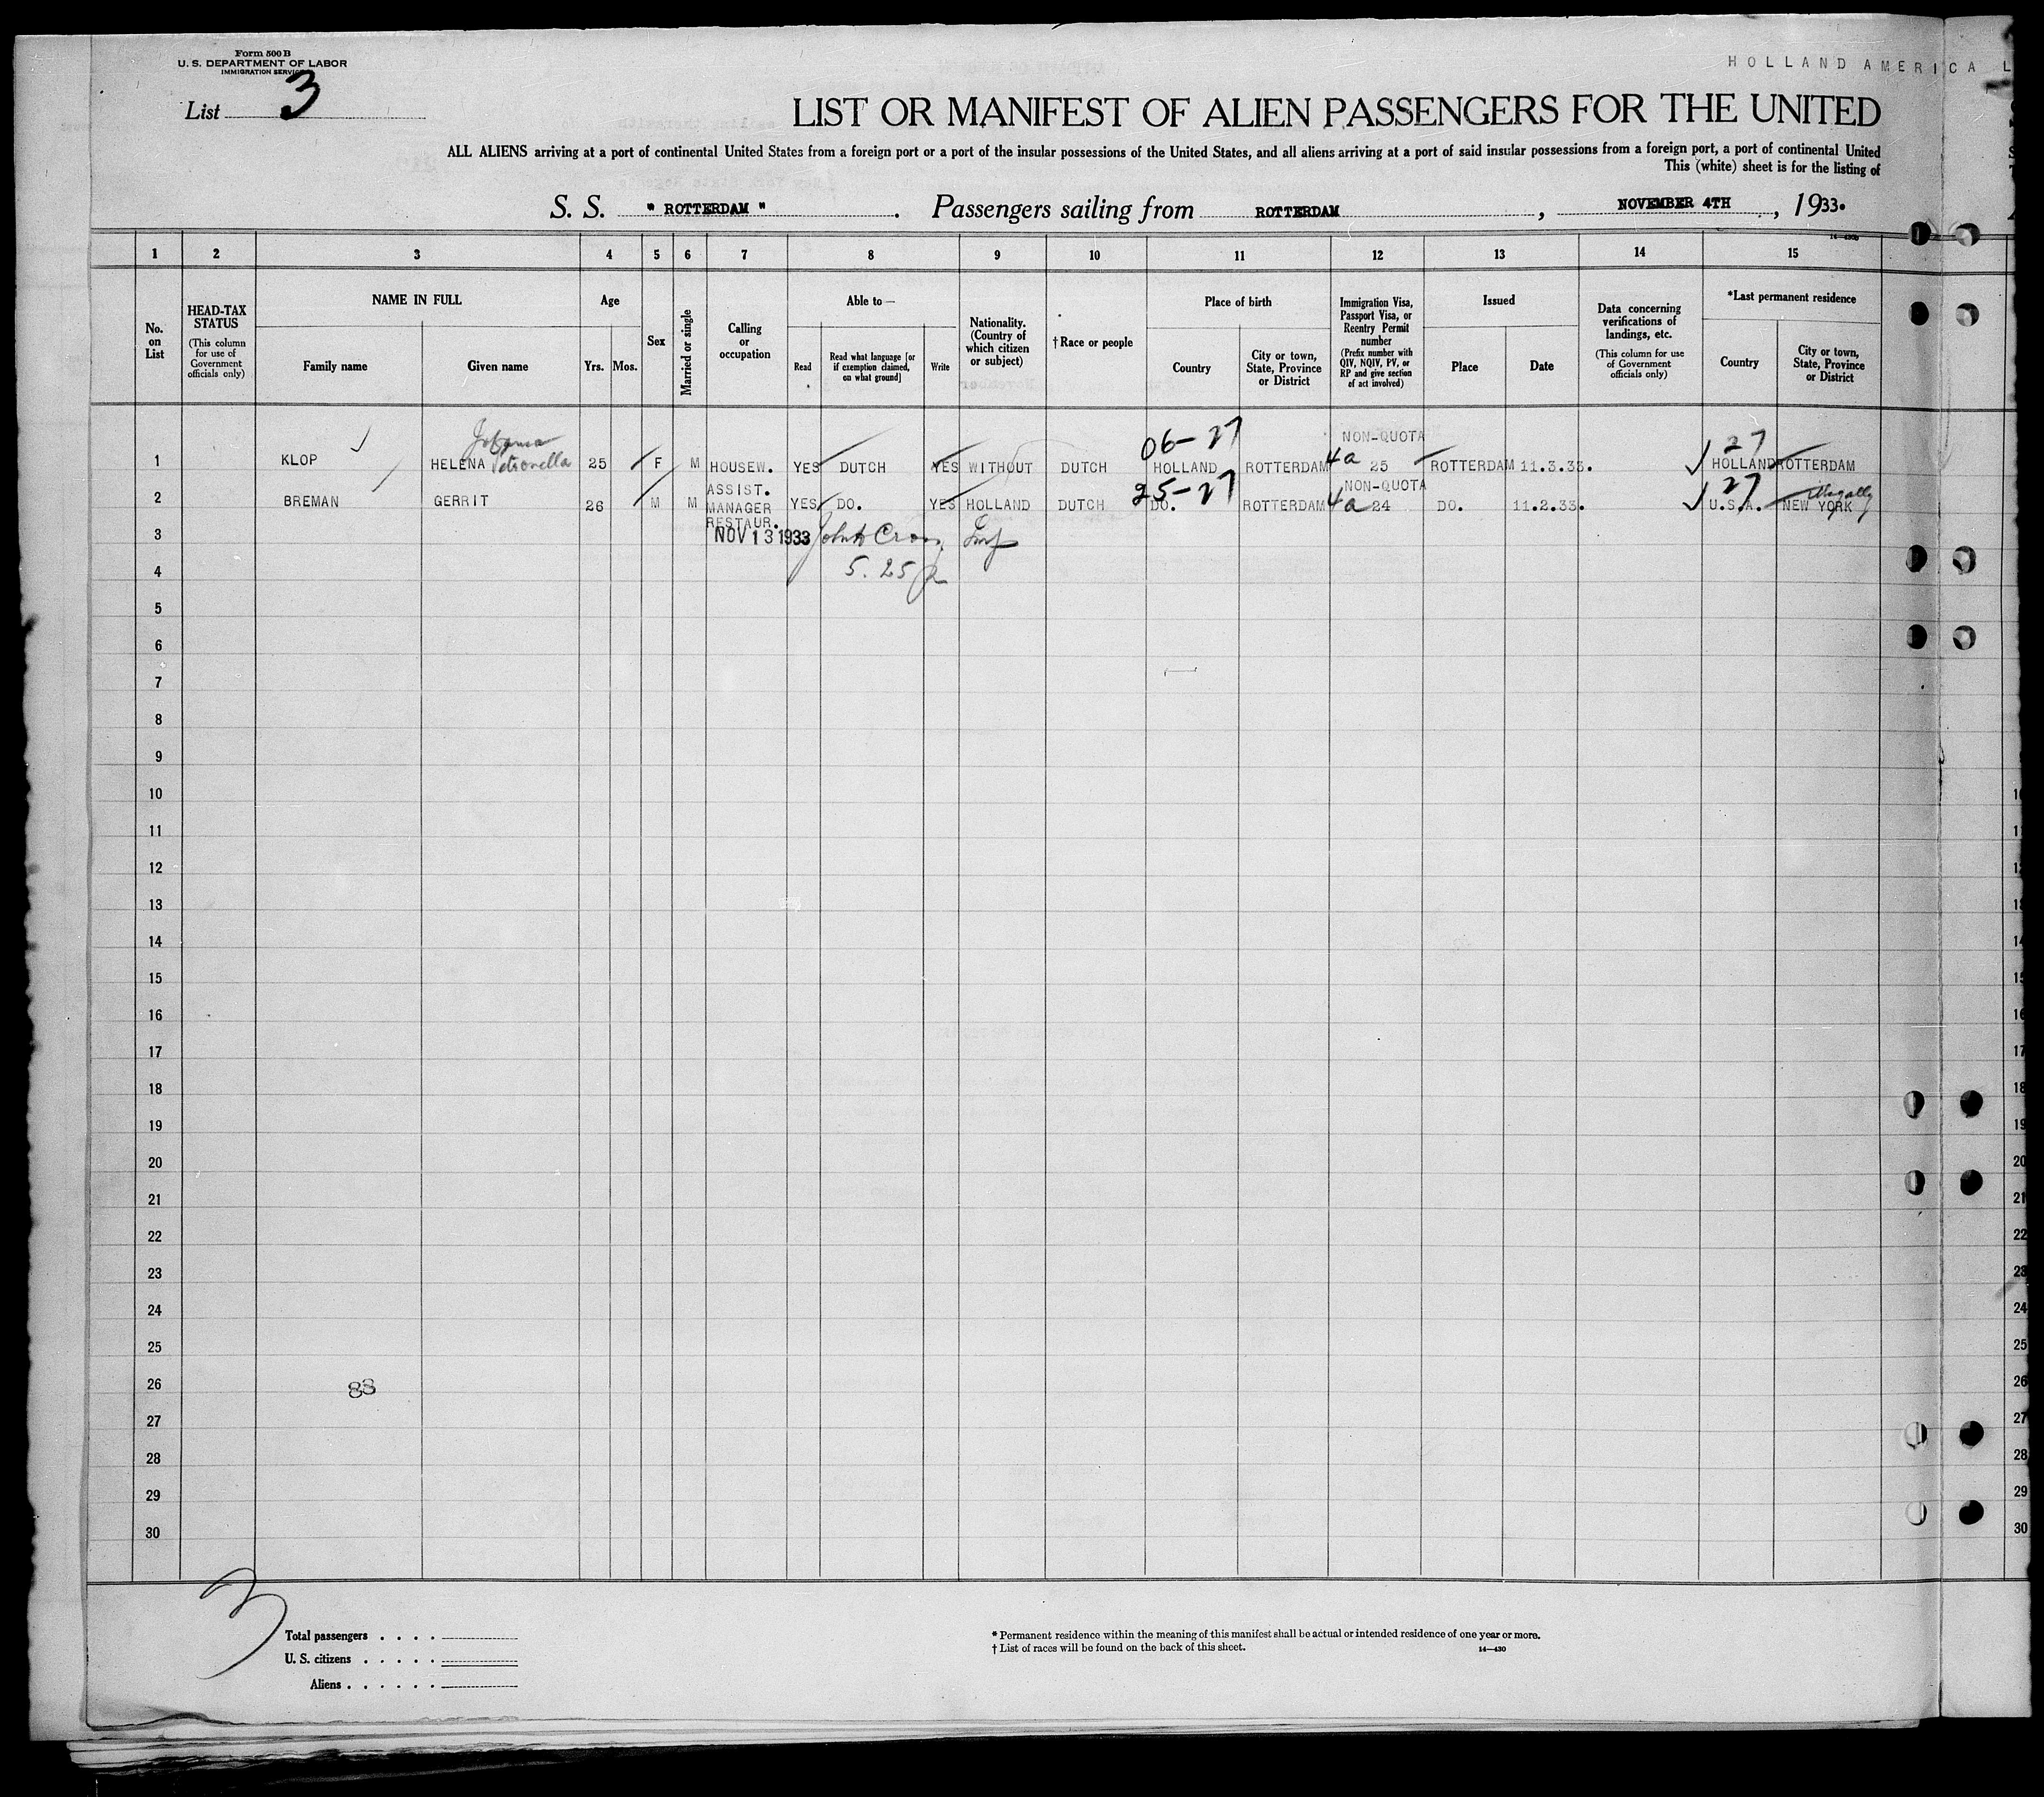 Form 500 B
U. S. DEPARTMENT OF LABOR
IMMIGRATION SERVICE
HOLLAND AMERICA L
List 3
LIST OR MANIFEST OF ALIEN PASSENGERS FOR THE UNITED
ALL ALIENS arriving at a port of continental United States from a foreign port or a port of the insular possessions of the United States, and all aliens arriving at a port of said insular possessions from a foreign port, a port of continental United
This (white) sheet is for the listing of
S. S. " ROTTERDAM " . Passengers sailing from ROTTERDAM , NOVEMBER 4TH , 1933.
1 2 3 4 5 6 7 8 9 10 11 12 13 14 15
No. on List
HEAD-TAX STATUS
(This column for use of Government officials only)
NAME IN FULL
Family name
Given name
Age
Yrs.
Mos.
Sex
Married or single
Calling or occupation
Able to—
Read
Read what language [or if exemption claimed, on what ground]
Write
Nationality. (Country of which citizen or subject)
† Race or people
Place of birth
Country
City or town, State, Province or District
Immigration Visa, Passport Visa, or Reentry Permit number
(Prefix number with QIV, NQIV, PV, or RP and give section of act involved)
Issued
Place
Date
Data concerning verifications of landings, etc.
(This column for use of Government officials only)
*Last permanent residence
Country
City or town, State, Province or District
Johanna 06-27 NON-QUOTA 27
1 KLOP HELENA Petronella 25 F M HOUSEW. YES DUTCH YES WITHOUT DUTCH HOLLAND ROTTERDAM 4a 25 ROTTERDAM 11.3.33. HOLLAND ROTTERDAM
ASSIST. 25-27 NON-QUOTA 27
2 BREMAN GERRIT 26 M M MANAGER YES DO. YES HOLLAND DUTCH DO. ROTTERDAM 4a 24 DO. 11.2.33. U.S.A. NEW YORK
RESTAUR.
3 NOV 13 1933
4 5.25
5
6
7
8
9
10
11
12
13
14
15
16
17
18
19
20
21
22
23
24
25
26 88
27
28
29
30
3
Total passengers
U. S. citizens
Aliens
* Permanent residence within the meaning of this manifest shall be actual or intended residence of one year or more.
† List of races will be found on the back of this sheet.
14—430